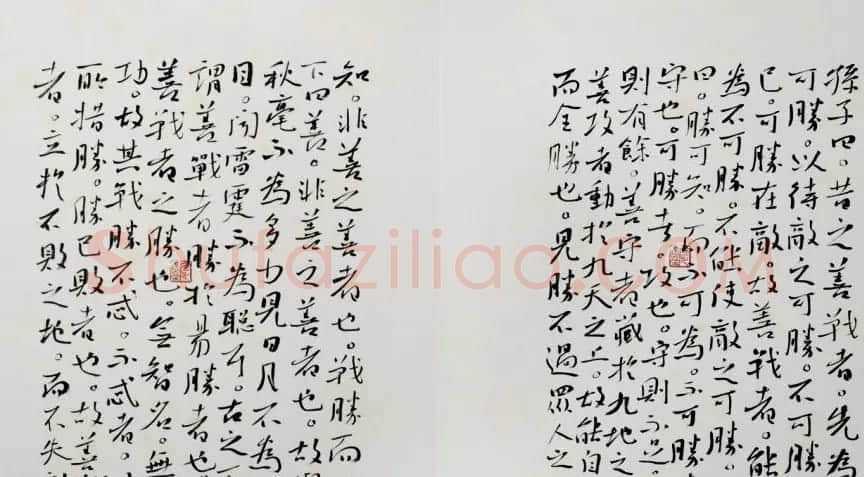 孫子曰。昔之善戰者。先為
可勝。以待敵之可勝。不可勝
已。可勝在敵。故善戰者。能
為不可勝。不能使敵之可勝。
曰。勝可知。而不可為。不可勝
守也。可勝者。攻也。守則不足。
則有餘。善守者藏於九地之
善攻者動於九天之上。故能自
而全勝也。見勝不過眾人之
知。非善之善者也。戰勝而
下曰善。非善之善者也。故
秋毫不為多力見日月不為
目。聞雷霆不為聰耳。古之
謂善戰者。勝於易勝者也
善戰者之勝也。無智名。無
功。故其戰勝不忒。不忒者。
所措勝。勝已敗者也。故善
者。立於不敗之地。而不失
Shufaziliao.com